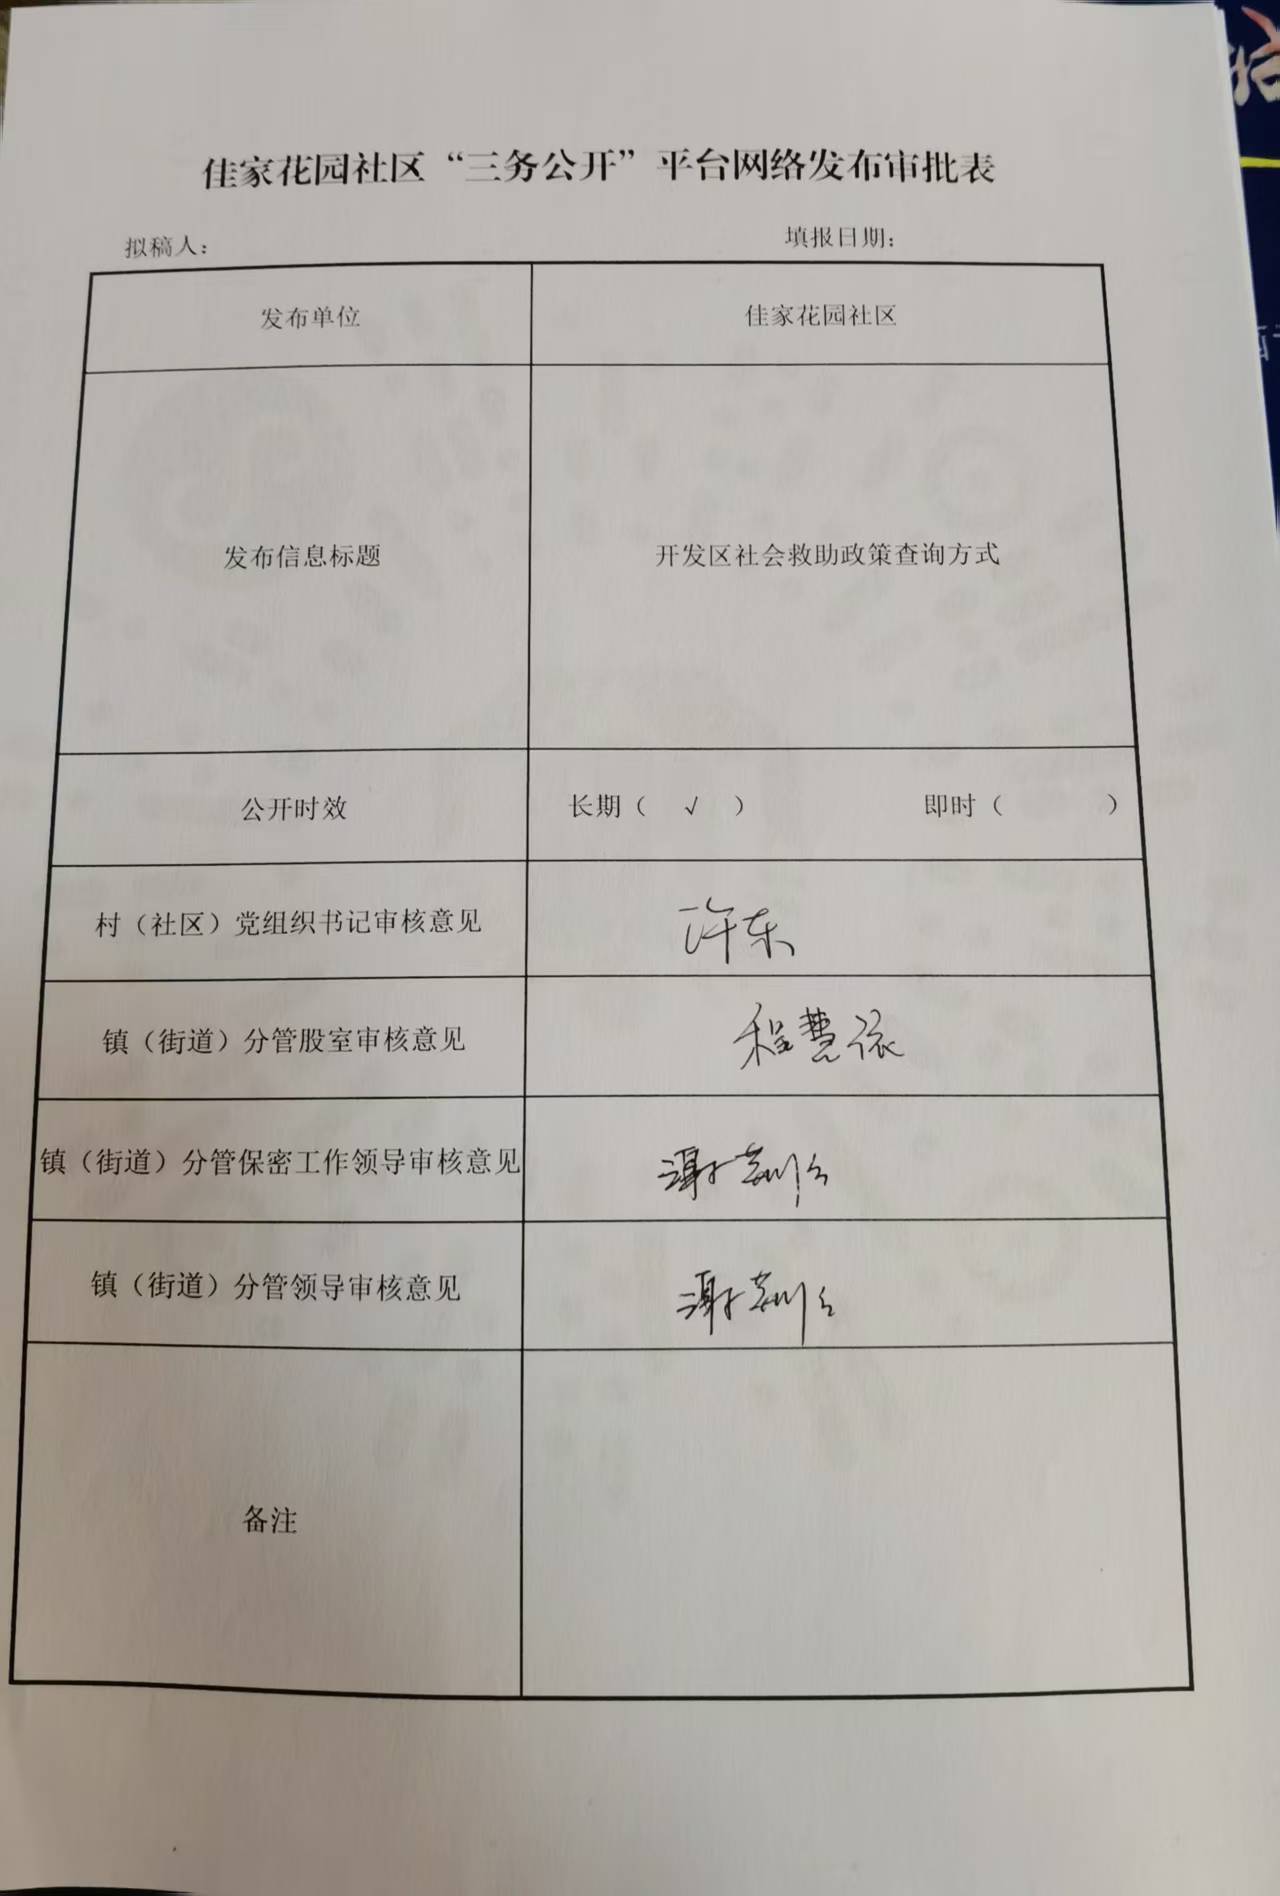 佳家花园社区“三务公开”平台网络发布审批表
拟稿人： 填报日期：
发布单位 佳家花园社区
发布信息标题 开发区社会救助政策查询方式
公开时效 长期（ √ ） 即时（ ）
村（社区）党组织书记审核意见 许东
镇（街道）分管股室审核意见 程慧依
镇（街道）分管保密工作领导审核意见
镇（街道）分管领导审核意见
备注